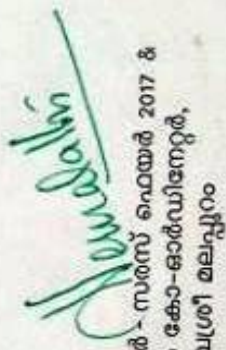 ർ - സരസ് ഫെയർ 2017 &
കോ-ഓർഡിനേറ്റർ,
ശ്രീ മലപ്പുറം